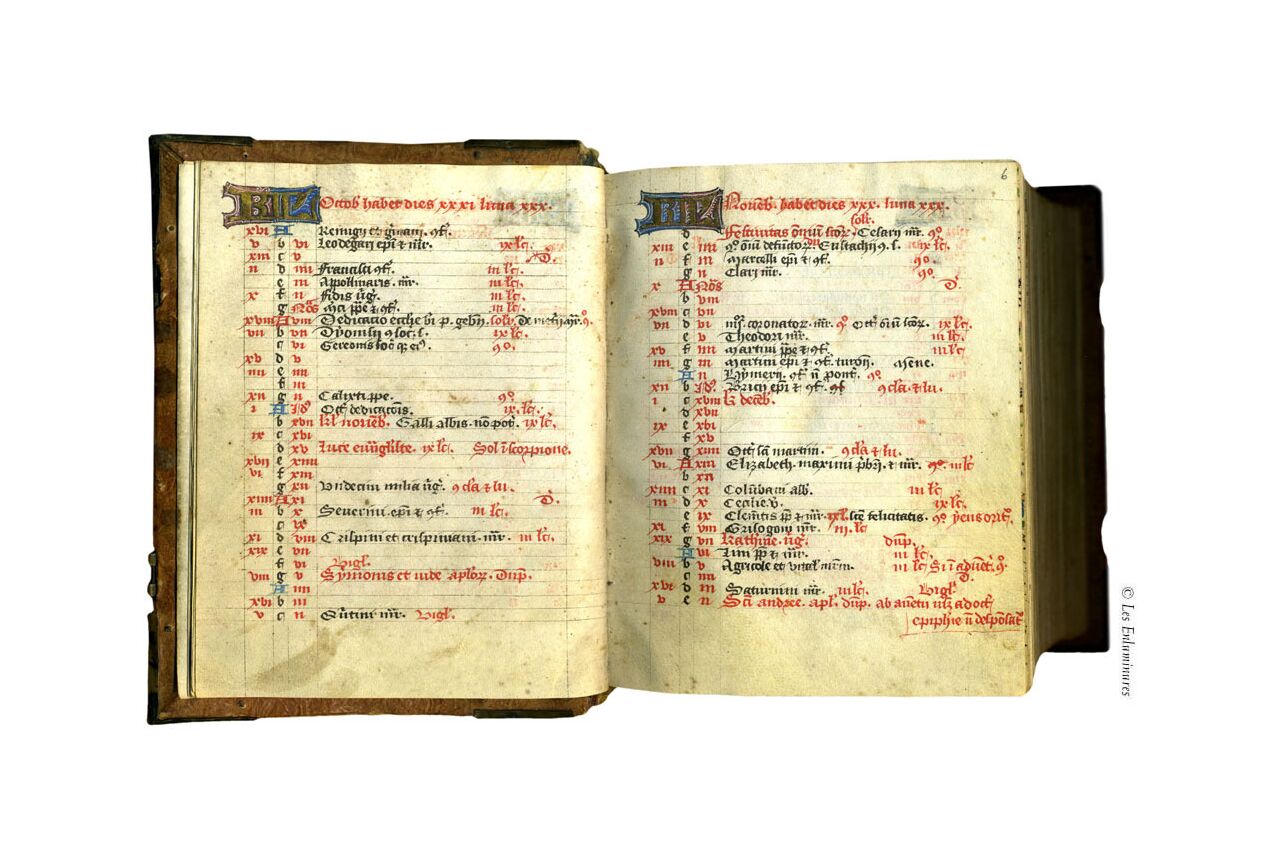 KL Octob habet dies xxxi luna xxx.
xvi A Remigii et germani 9f.
v b vi Leodegarii epi & mr. ix lc.
xiii c v D.
n d iiii Francisci 9f. iii lc.
e iii Appollinaris. mr. iii lc.
x f ii Fidis v̄g. iii lc.
g Nōs Mīci ppe & 9f. iii lc.
xviii A viii Dedicatio ecclie bi p.
vii b vii Dyonisii 9 soc. l. ix lc.
c vi Gereonis soc 9o.
xv d v
iiii e iiii
f iii
xii g ii Calixti ppe. 9o
i A Id Oct dedicatōis. ix. lc.
b xvii kl novēb. Galli albis. no pot. ix lc.
ix c xvi
d xv Luce ewglīste. ix lc. Sol ī scorpione.
xvii e xiiii
vi f xiii
g xii Undecim milia v̄g. 9cla & lu.
xiiii A xi D.
iii b x Severini. epi & 9f. iii lc.
c ix
xi d viii Crispini et crispiniani. mr. iii lc.
xix e vii
f vi Vigl.
viii g v Symonis et iude aplor. Dup.
A iiii
xvi b iii
v c ii Qūtini mr. Vigl.
6
KL Novēb. habet dies xxx. luna xxx.
solt.
d Festivitas ōniū scor. Cesarii mr. 9o
xiii e iiii 9o ōiū defunctor. Eustachii 9. l. ix lc.
ii f iii Marcelli epi & 9f. 9o.
g ii Clari mr. 9o.
x A Nōs D.
b viii
xviii c vii
vii d vi iiiior coronator. mr. 9o Oct ōiū scor. ix lc.
e v Theodori mr. iii lc.
xv f iiii Martini ppe & 9f. iii lc.
iiii g iii Martini epi & 9f. turon. Mene.
A ii
xii b Id Bricii epi & 9f. 9cla & lu.
i c xviii kl decēb.
d xvii
ix e xvi
f xv
xvii g xiiii Oct sci martini. 9cla & lu.
vi A xiii Elizabeth. maximi pbri. & mr. 9o. iii lc
b xii
xiiii c xi Colūbani abb. iii lc
iii d x Cecilie. v. ix lc.
e ix Clemētis pp & mr. ix l. scē felicitatis. 9o
xi f viii Grisogoni mr. iii. lc.
xix g vii Katherine. v̄g. dup.
A vi Lini pp & mr. iii lc.
viii b v Agricole et vital mrm. iii lc
c iiii D.
xvi d iii Saturnini mr. iii lc. Vigl.
v e ii Sci andree. apl. dup.
© Les Enluminures